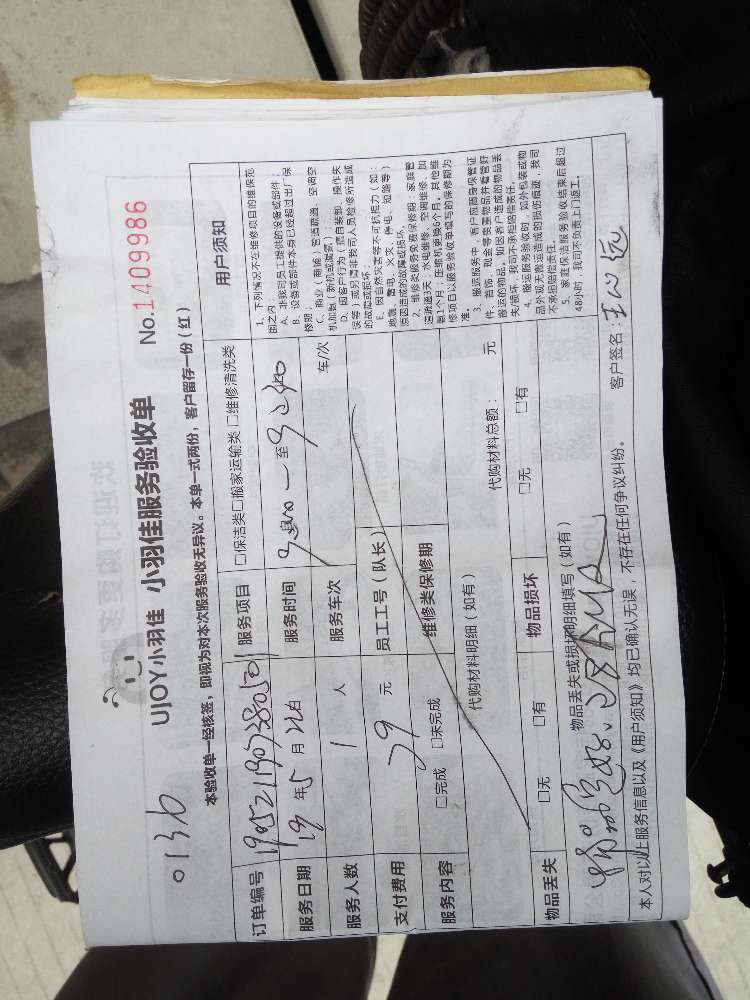 0136
UJOY小羽佳 小羽佳服务验收单 No.1409986
本验收单一经核签，即视为对本次服务验收无异议。本单一式两份，客户留存一份（红）
订单编号 服务项目 □保洁类□搬家运输类 □维修清洗类
服务日期 19 年 5 月 服务时间 至
服务人数 1 人 服务车次 车/次
支付费用 79 元 员工工号（队长）
服务内容 □完成 □未完成 维修类保修期
代购材料明细（如有） 代购材料总额： 元
物品丢失 □无 □有 物品损坏 □无 □有
物品丢失或损坏明细填写（如有）
用户须知
1、下列情况不在维修项目的维保范
围之内：
A、非我司员工提供的设备或部件；
B、设备或部件本身已经超过出厂保
修期；
C、商业（商铺）管道疏通、空调空
机加氨（新机或漏氨）；
D、因客户行为（擅自装卸、操作失
误等）或另请非我司人员检修所造成
的故障或损坏；
E、因自然灾害等不可抗拒力（如：
地震、雷电、火灾、停电、短路等）
原因造成的故障或损坏。
2、维修类服务免费保修期：家庭管
道疏通3天；水电维修、空调维修、加
氨1个月；压缩机更换6个月。其他维
修项目以服务验收单填写的保修期为
准。
3、搬运服务中，客户应随身保管证
件、首饰、现金等贵重物品并看管好
搬运的物品，如因客户造成的物品丢
失损坏，我司不承担赔偿责任。
4、搬运服务验收时，如外包装或物
品外观无搬运造成的损伤痕迹，我司
不承担赔偿责任。
5、家庭保洁服务验收结束后超过
48小时，我司不负责上门返工。
本人对以上服务信息以及《用户须知》均已确认无误，不存在任何争议纠纷。 客户签名：